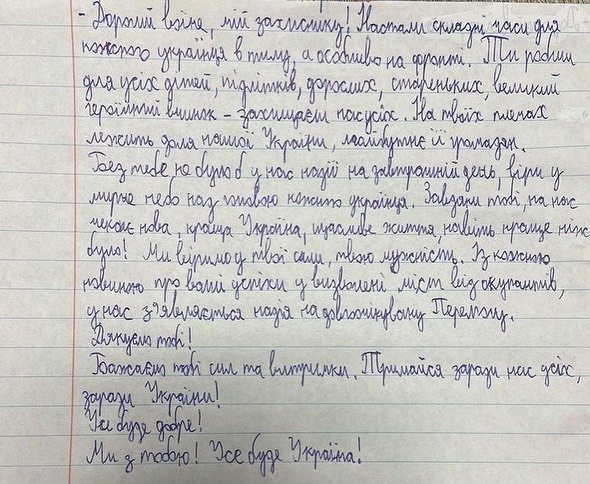 - Дорогий воїне, мій захиснику! Настали складні часи для
кожного українця в тилу, а особливо на фронті. Ти робиш
для усіх дітей, підлітків, дорослих, стареньких, великий
героїчний вчинок - захищаєш нас усіх. На твоїх плечах
лежить доля нашої України, майбутнє її громадян.
Без тебе не було б у нас надії на завтрашній день, віри у
мирне небо над головою кожного українця. Завдяки тобі, на нас
чекає нова, краща Україна, щасливе життя, навіть краще ніж
було! Ми віримо у твої сили, твою мужність. Із кожною
новиною про ваші успіхи у визволені міст від окупантів,
у нас з'являється надія на довгоочікувану Перемогу.
Дякуємо тобі!
Бажаємо тобі сил та витримки. Тримайся заради нас усіх,
заради України!
Усе буде добре!
Ми з тобою! Усе буде Україна!